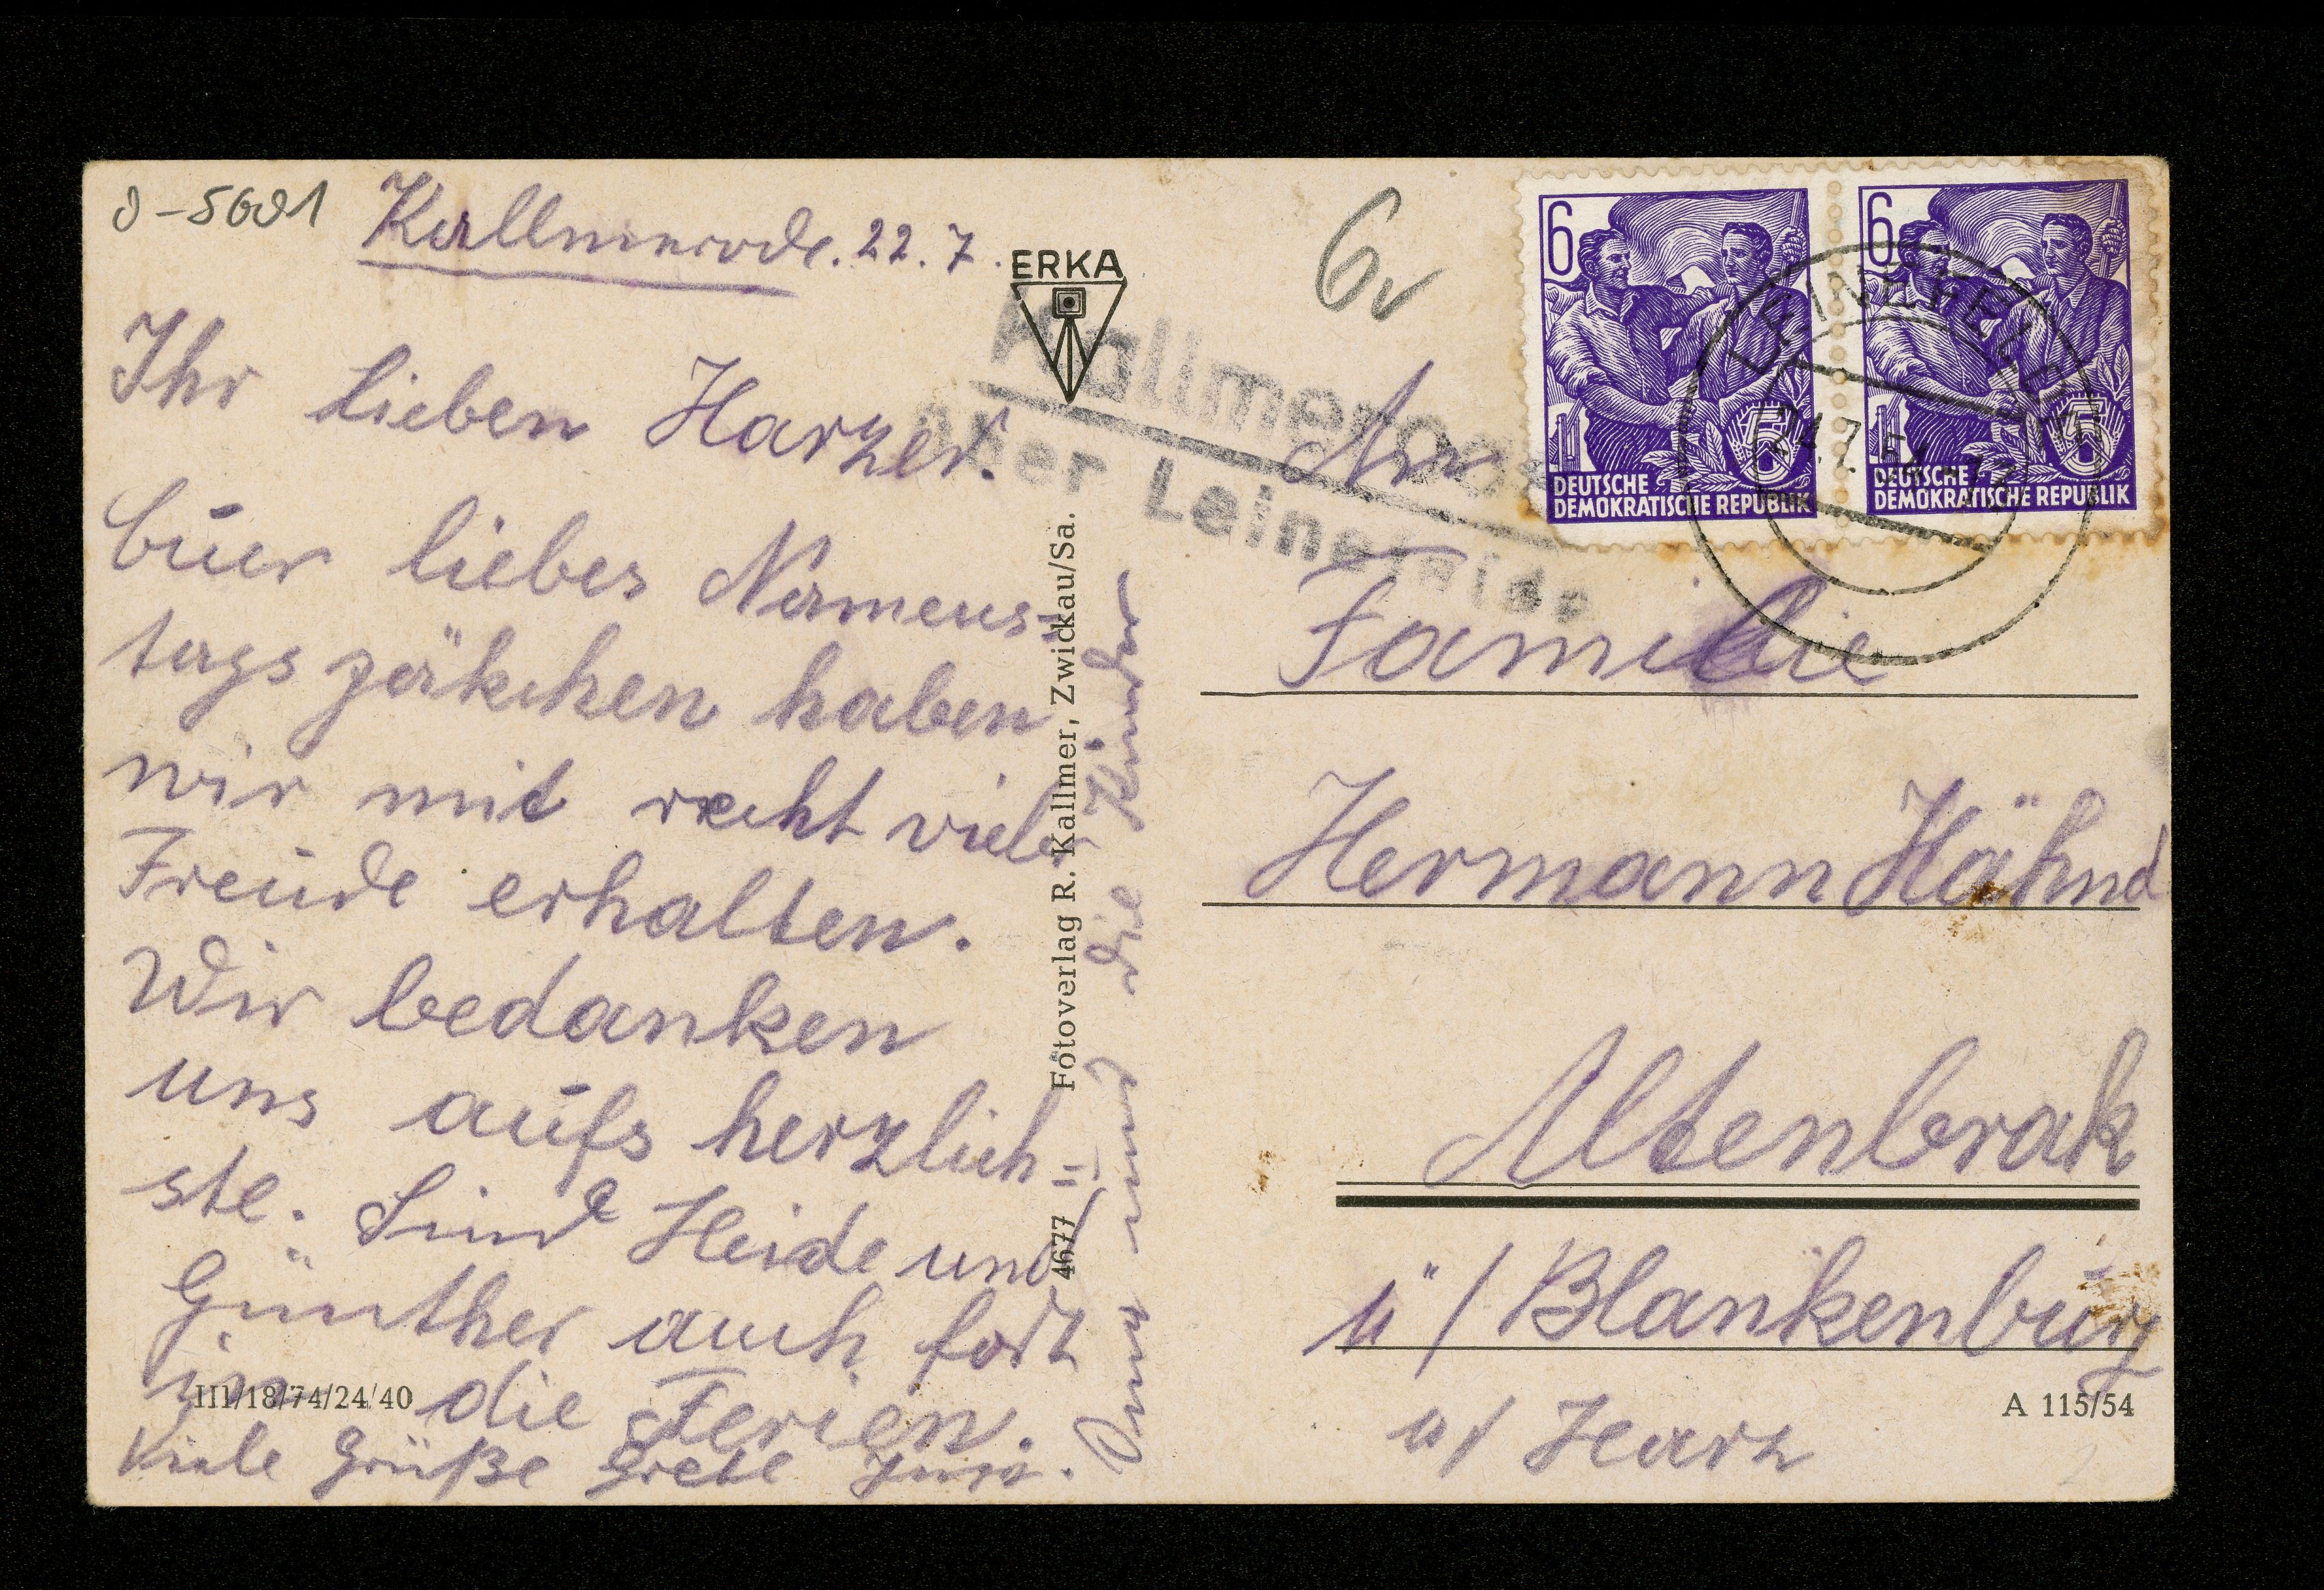 D-5601
Kallmerode. 22. 7.
Ihr Lieben Harzer.
Euer liebes Namens=
tagspäkchen haben
wir mit recht vieler
Freude erhalten.
Wir bedanken
uns aufs herzlich=
ste. Sind Heide und
Günther auch fort
in die Ferien.
Viele Grüße Grete
und die Kinder
ERKA
4677 Fotoverlag R. Kallmer, Zwickau/Sa.
III/18/74/24/40
Kallmerode
über Leinefelde
6
6
DEUTSCHE
DEMOKRATISCHE REPUBLIK
6
DEUTSCHE
DEMOKRATISCHE REPUBLIK
LEINEFELDE
24.7.54
An
Familie
Hermann Hähnd
Altenbrak
ü/Blankenburg
a/Harz
A 115/54